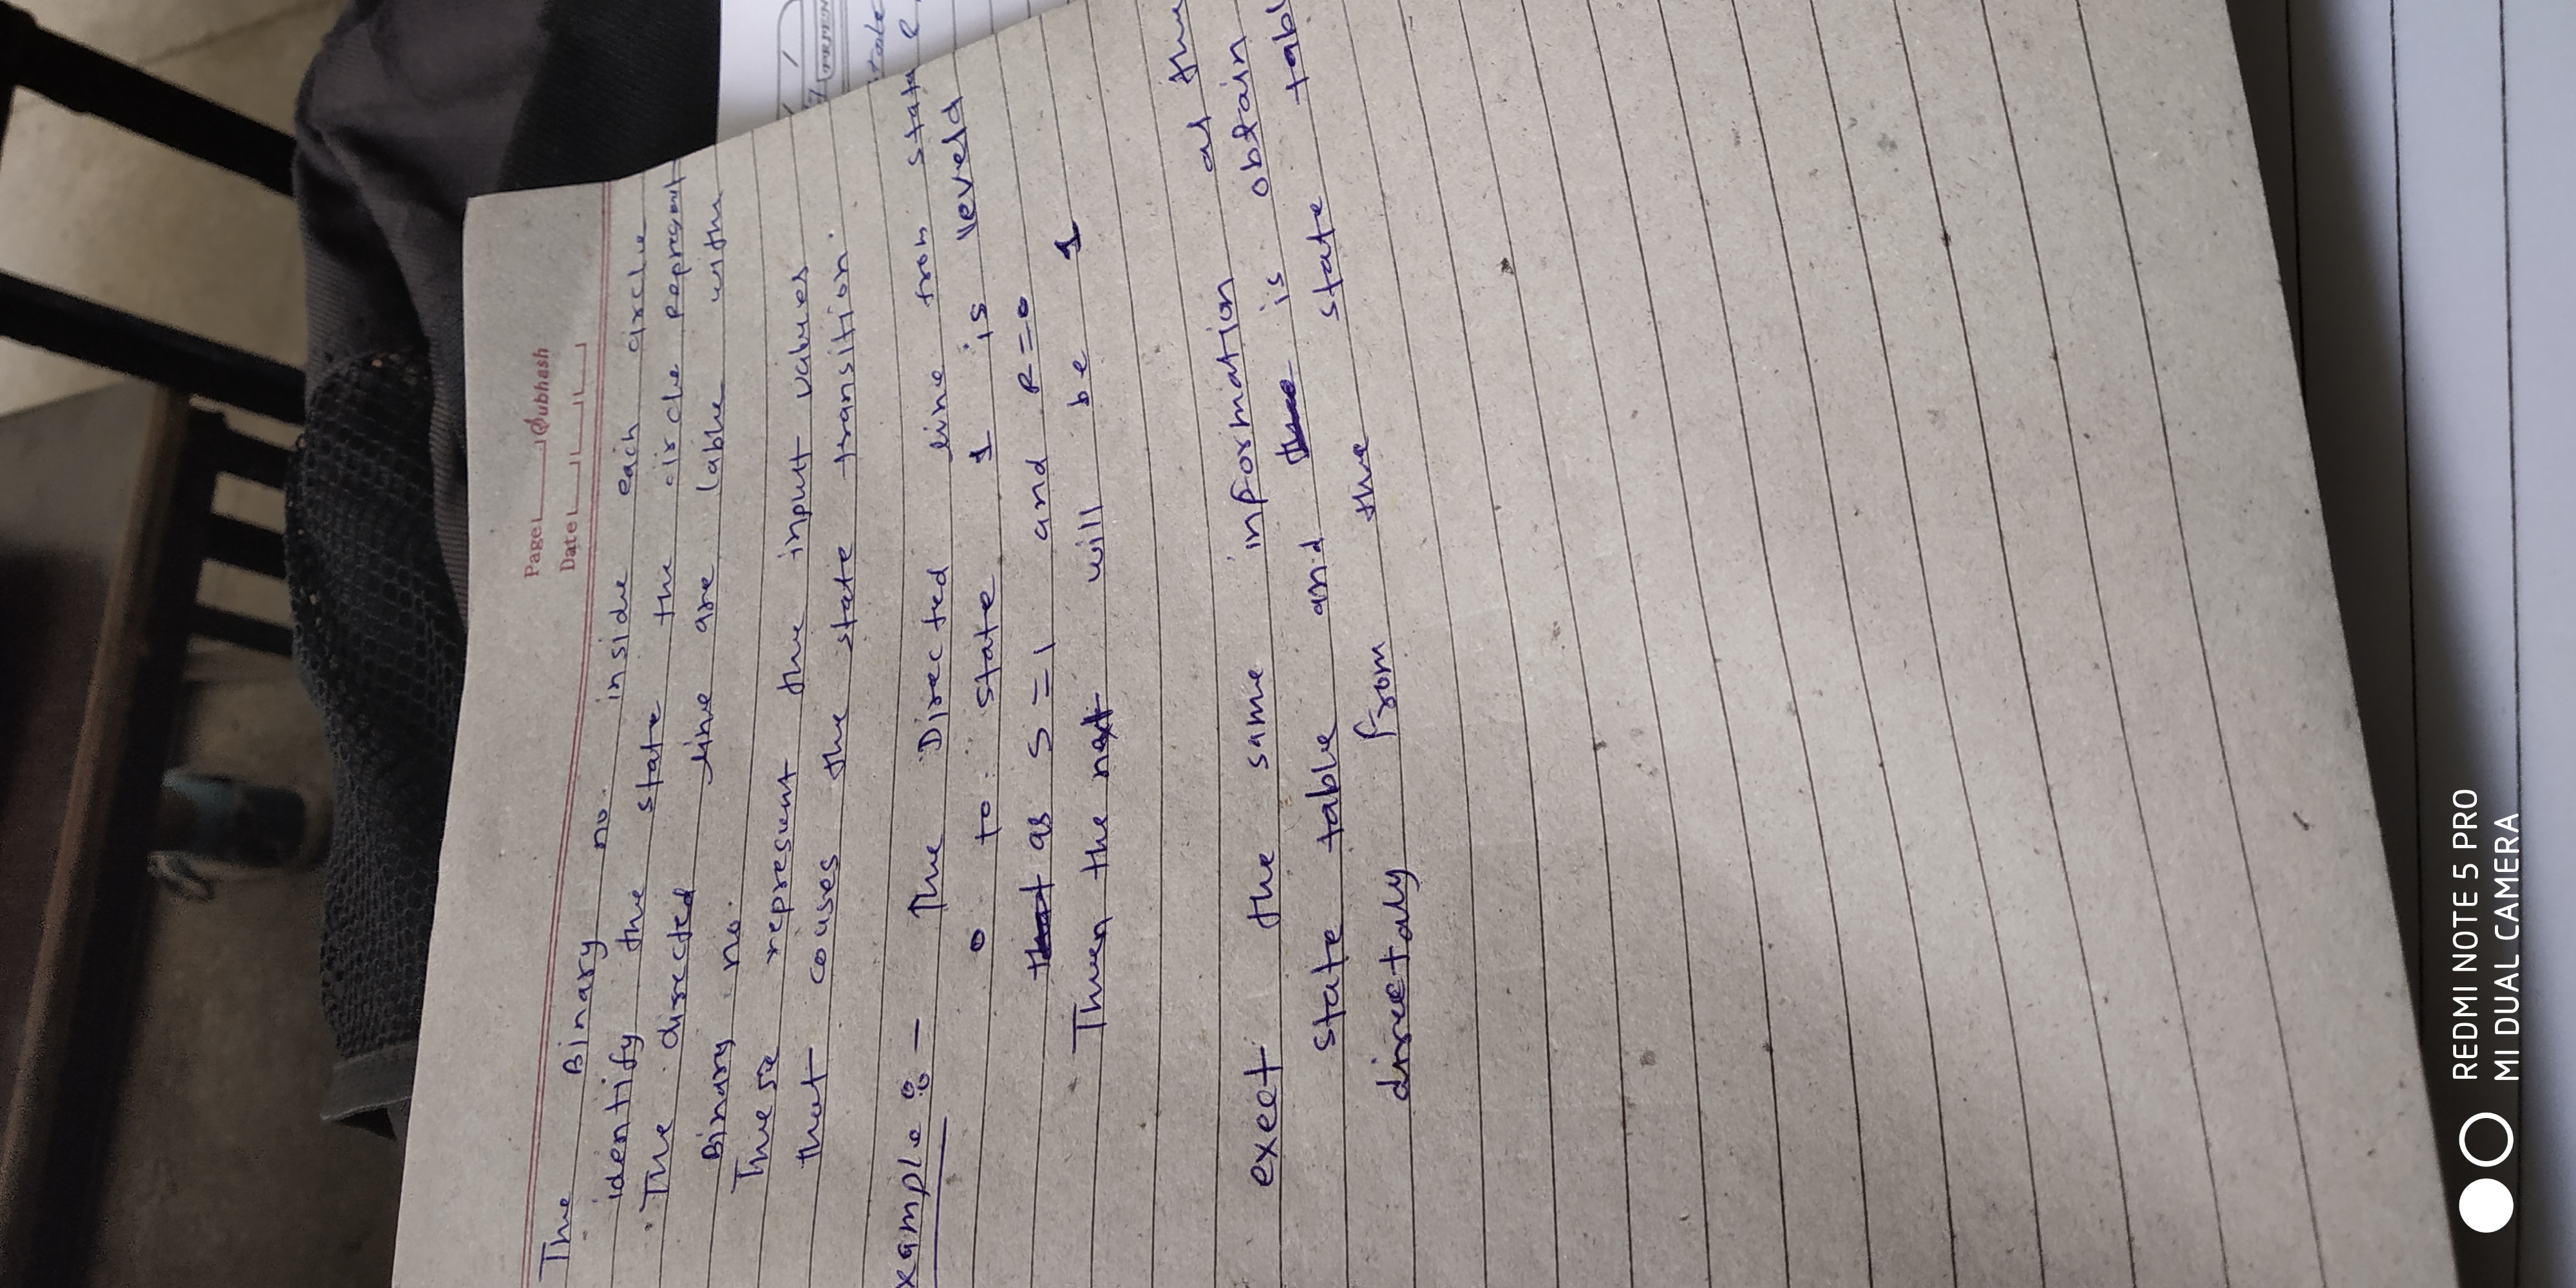 Page Subhash
Date
The Binary no. inside each circle
identify the state the circle Represent
The directed line are lable with
Binary no.
These represent the input values
that couses the state transition.
xample :- The Directed line from state
0 to state 1 is leveld
that as S = 1 and R = 0
Then the next will be 1
exect the same information as the
state table and the is obtain
directaly from the state tabl
REDMI NOTE 5 PRO
MI DUAL CAMERA